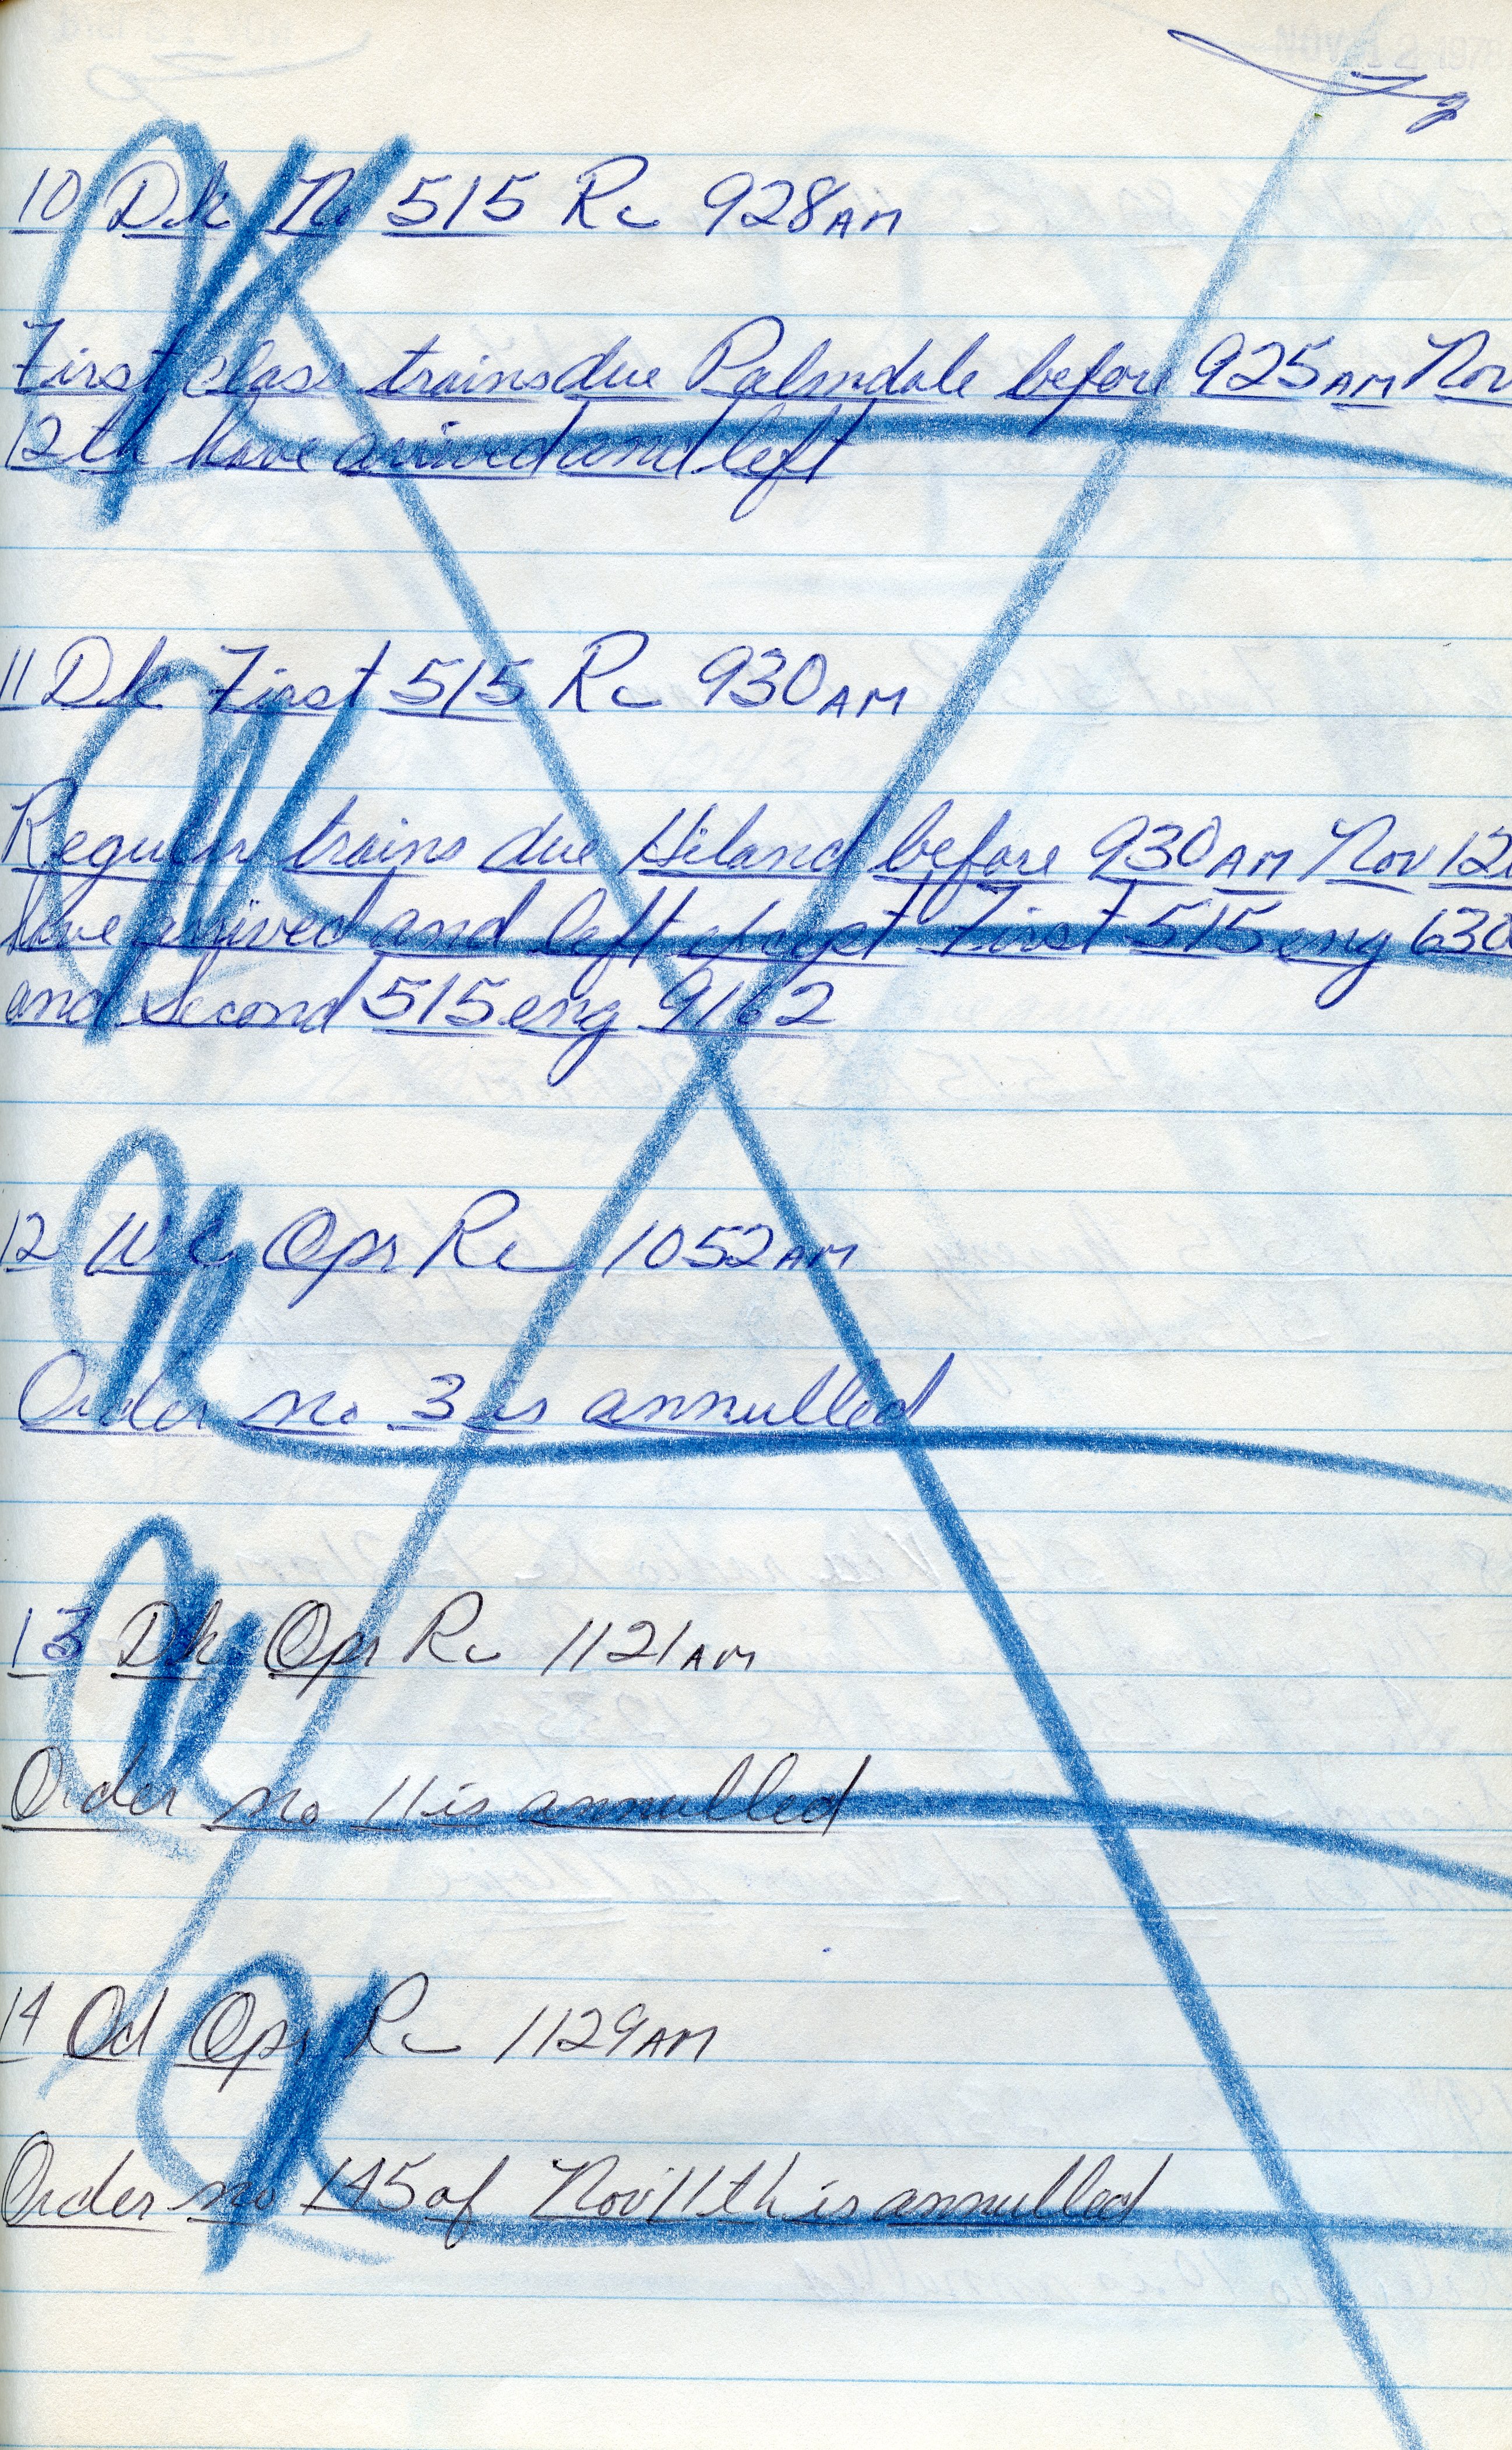 NOV 12 1978
10 Dk No 515 Rc 928AM
First class trains due Palmdale before 925AM Nov
12th have arrived and left
11 Dk First 515 Rc 930AM
Regular trains due Hiland before 930AM Nov 12
have arrived and left except First 515 eng 630
and Second 515 eng 9162
12 Opr Rc 1052AM
Order no 3 is annulled
13 Dk Opr Rc 1121AM
Order no 11 is annulled
14 Od Opr Rc 1129AM
Order no 145 of Nov 11th is annulled